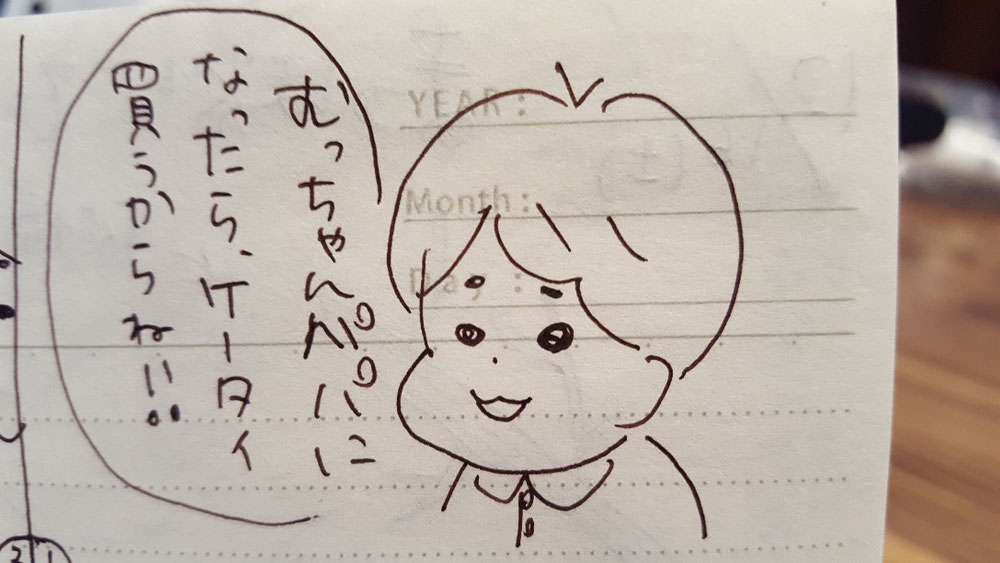 むっちゃんパパに
なったら、ケータイ
買うからね!!
YEAR :
Month :
Day :